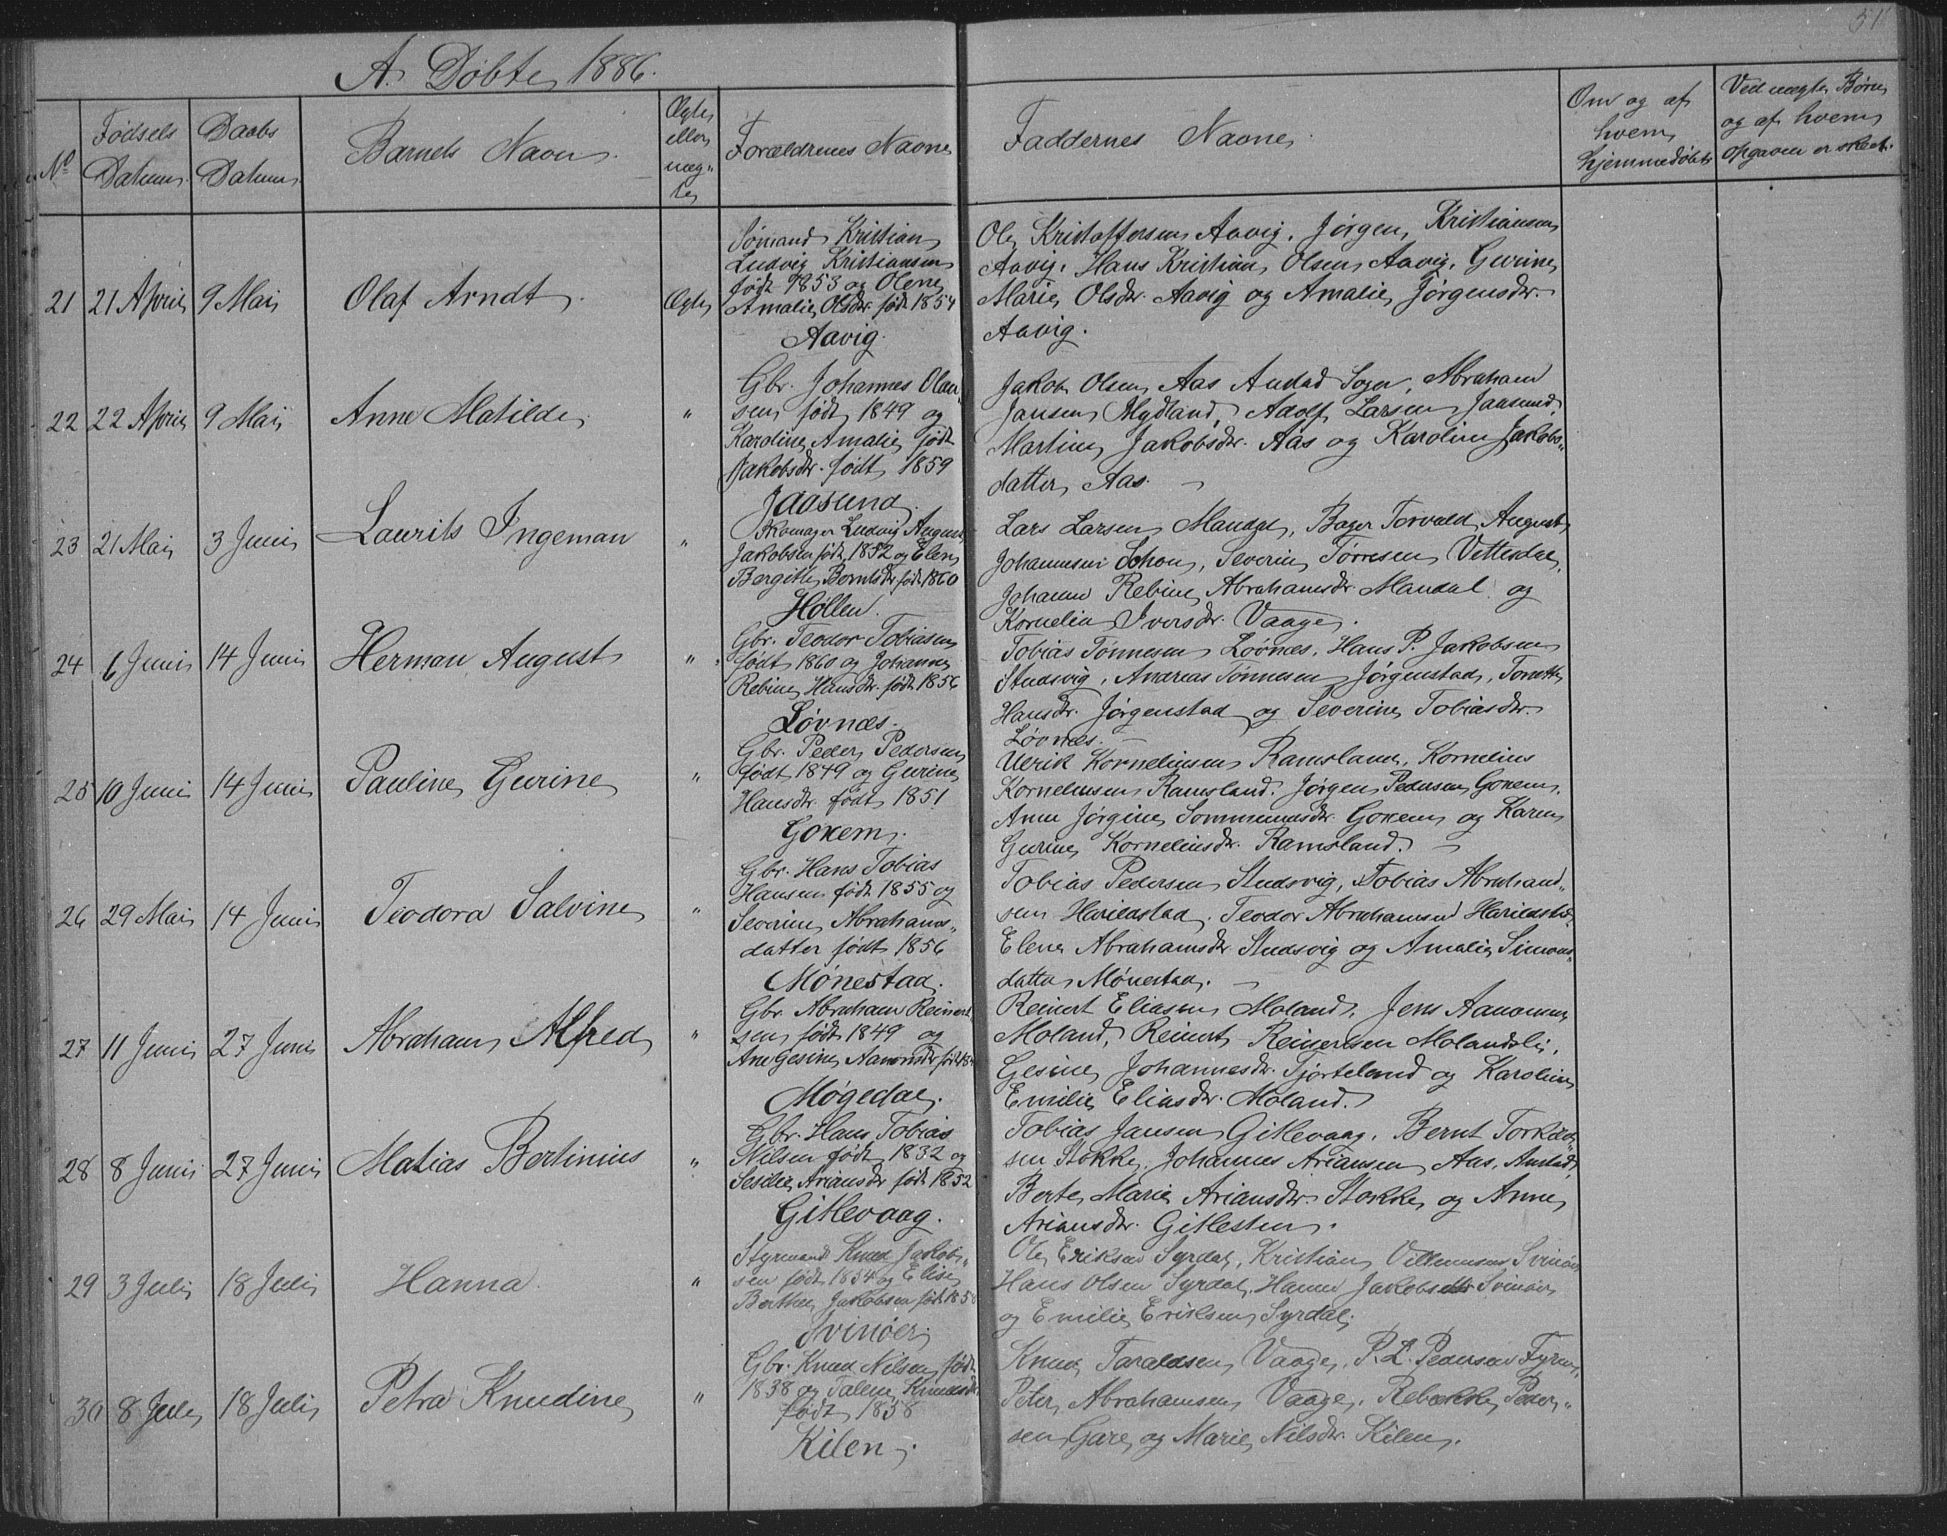 51
A. Døbte 1886.
No
Fødsels Datum.
Daabs Datum.
Barnets Navn.
Ægte eller uæg-te
Forældrenes Navne
Faddernes Navne
Om og af hvem hjemmedøbt
Ved uægte Børn og af hvem Opgaven er skeet.
21 21 April 9 Mai Olaf Arndt. Ægte
Sømand Kristian
Ludvig Kristiansen
født 1853 og Olene
Amalie Olsdr. født 1854
Aavig.
Ole Kristoffersen Aavig, Jørgen Kristiansen
Aavig, Hans Kristian Olsen Aavig, Gurine
Marie Olsdr. Aavig og Amalie Jørgensdr.
Aavig.
22 22 April 9 Mai Anne Matilde "
Gbr. Johannes Olau-
sen født 1849 og
Karoline Amalie født
Jakobsdr. født 1859
Jaasund.
Jakob Olsen Aas Audnd Sogn, Abraham
Jansen Mydland, Adolf Larsen Jaasund,
Martine Jakobsdr. Aas og Karoline Jakobs-
datter Aas.
23 21 Mai 3 Juni Laurits Ingeman "
Skomager Ludvig August
Jakobsen født 1852 og Elen
Bergitte Berntsdr. født 1860
Høllen.
Lars Larsen Mandal, Bager Torvald August
Johannesen Schou, Severin Tørresen Vittesdal,
Johanne Rebine Abrahamsdr. Mandal og
Kornelia Iversdr. Vaage.
24 6 Juni 14 Juni Herman August "
Gbr. Teodor Tobiasen
født 1860 og Johanne
Rebine Hansdr. født 1856
Løvnæs.
Tobias Tønnesen Løvnæs, Hans P. Jakobsen
Studsvig, Andreas Tønnesen Jørgenstad, Tonette
Hansdr. Jørgenstad og Severine Tobiasdr.
Løvnæs.
25 10 Juni 14 Juni Pauline Gurine "
Gbr. Peder Pedersen
født 1849 og Gurine
Hansdr. født 1851
Goxem.
Ulrik Korneliusen Ramsland, Kornelius
Korneliusen Ramsland, Jørgen Pedersen Goxem,
Anne Jørgine Goxem og Karen
Gurine Korneliusdr. Ramsland.
26 29 Mai 14 Juni Teodora Salvine "
Gbr. Hans Tobias
Hansen født 1855 og
Severine Abrahams-
datter født 1856
Mønestad.
Tobias Pedersen Studsvig, Tobias Abraham-
sen Harildstad, Teodor Abrahamsen Harildstad,
Elene Abrahamsdr. Studsvig og Amalie Simons-
datter Mønestad.
27 11 Juni 27 Juni Abraham Alfred "
Gbr. Abraham Reinert-
sen født 1849 og
Ane Gesine Aanonsdr. født
Møgedal.
Reinert Eliasen Moland, Jens Aanonsen
Moland, Reinert Reinertsen Molandsli,
Gesine Johannesdr. Tjorteland og Karoline
Emilie Eliasdr. Moland.
28 8 Juni 27 Juni Matias Bertinius "
Gbr. Hans Tobias
Nilsen født 1832 og
Ariansdr. født 1852
Gitlevaag.
Tobias Jansen Gitlevaag, Bernt Torkild-
sen Stokke, Johannes Ariansen Aas,
Berte Marie Ariansdr. Stokke og Anne
Ariansdr. Gitlesten.
29 3 Juli 18 Juli Hanna. "
Styrmand Knud Jakob-
sen født 1854 og Elise
Berthe Jakobsen født
Svinøer,
Ole Eriksen Syrdal, Kristian Villumsen Svinøer
Hans Olsen Syrdal, Hanne Jakobsdtr Svinøer
og Emilie Eriksen Syrdal.
30 8 Juli 18 Juli Petra Knudine "
Gbr. Knud Nilsen født
1838 og Talene Knudsdr.
født 1858
Kilen.
Knud Taraldsen Vaage, P. L. Pedersen
Peter Abrahamsen Vaage, Rebekke Peder-
sen Gare og Marie Nilsdr. Kilen.